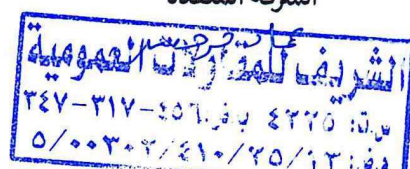 الشركة المنفذة
الشريف للمقاولات العمومية
س.ت: ٤٢٢٥ ب.ض: ٤٥٦-٣١٧-٣٤٧
٥/٠٠٣٠٢/٤١٠/٢٥/١٣